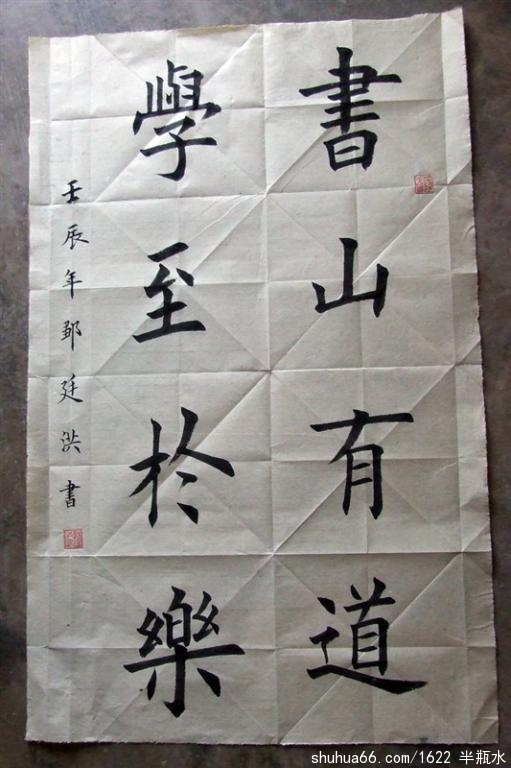 書山有道
學至於樂
壬辰年鄞廷洪書
shuhua66.com/1622 半瓶水